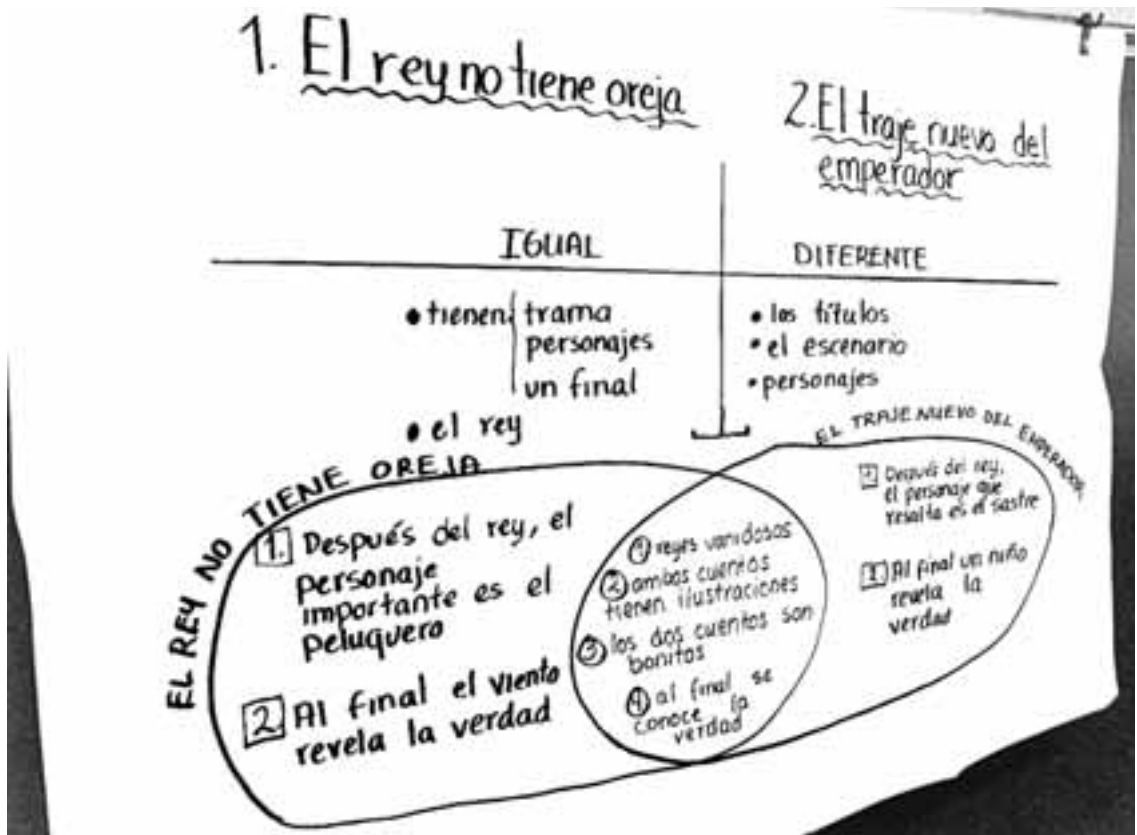 1. El rey no tiene oreja
2. El traje nuevo del
emperador
IGUAL
DIFERENTE
• tienen trama
personajes
un final
• el rey
• los títulos
• el escenario
• personajes
EL REY NO TIENE OREJA
1. Después del rey, el
personaje
importante es el
peluquero
2. Al final el viento
revela la verdad
1 reyes vanidosos
2 ambos cuentos
tienen ilustraciones
3 los dos cuentos son
bonitos
4 al final se
conoce la
verdad
EL TRAJE NUEVO DEL EMPERADOR
Después del rey,
el personaje que
resalta es el sastre
Al final un niño
revela la
verdad